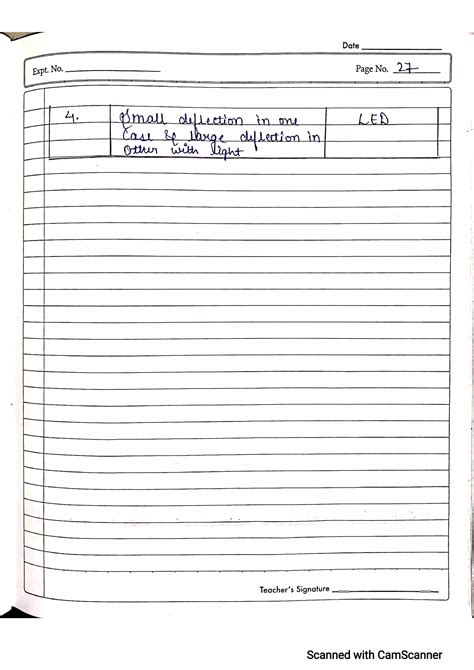 Date
Expt. No.
Page No. 27
4. Small deflection in one LED
Case & large deflection in
other with light
Teacher's Signature
Scanned with CamScanner